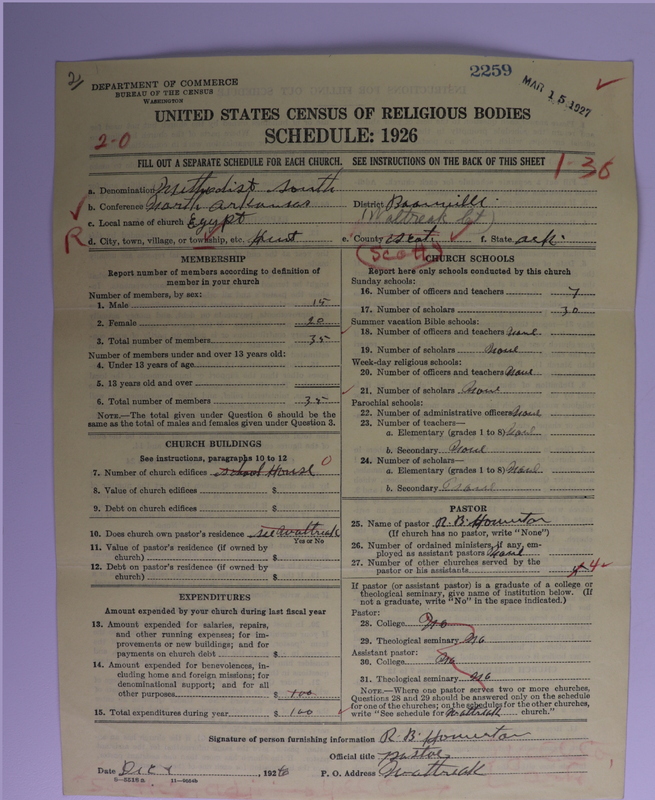 2259
MAR 15 1927
DEPARTMENT OF COMMERCE
BUREAU OF THE CENSUS
WASHINGTON
UNITED STATES CENSUS OF RELIGIOUS BODIES
SCHEDULE: 1926
2-0
FILL OUT A SEPARATE SCHEDULE FOR EACH CHURCH. SEE INSTRUCTIONS ON THE BACK OF THIS SHEET
1-36
a. Denomination Methodist South
b. Conference North Arkansas District Boonville
(Waltreak Cgt)
c. Local name of church Egypt
R d. City, town, village, or township, etc. Hunt e. County Scott f. State ark
(Scott)
MEMBERSHIP
Report number of members according to definition of
member in your church
Number of members, by sex:
1. Male 15
2. Female 20
3. Total number of members 35
Number of members under and over 13 years old:
4. Under 13 years of age
5. 13 years old and over
6. Total number of members 35
NOTE.—The total given under Question 6 should be the
same as the total of males and females given under Question 3.
CHURCH BUILDINGS
See instructions, paragraphs 10 to 12
7. Number of church edifices School House 0
8. Value of church edifices $
9. Debt on church edifices $
10. Does church own pastor's residence see Waltreak
Yes or No
11. Value of pastor's residence (if owned by
church) $
12. Debt on pastor's residence (if owned by
church) $
EXPENDITURES
Amount expended by your church during last fiscal year
13. Amount expended for salaries, repairs,
and other running expenses; for im-
provements or new buildings; and for
payments on church debt $
14. Amount expended for benevolences, in-
cluding home and foreign missions; for
denominational support; and for all
other purposes $ 100
15. Total expenditures during year $ 100
CHURCH SCHOOLS
Report here only schools conducted by this church
Sunday schools:
16. Number of officers and teachers 7
17. Number of scholars 30
Summer vacation Bible schools:
18. Number of officers and teachers None
19. Number of scholars None
Week-day religious schools:
20. Number of officers and teachers None
21. Number of scholars None
Parochial schools:
22. Number of administrative officers None
23. Number of teachers—
a. Elementary (grades 1 to 8) None
b. Secondary None
24. Number of scholars—
a. Elementary (grades 1 to 8) None
b. Secondary None
PASTOR
25. Name of pastor R. B. Howerton
(If church has no pastor, write "None")
26. Number of ordained ministers, if any, em-
ployed as assistant pastors None
27. Number of other churches served by the
pastor or his assistants 4
If pastor (or assistant pastor) is a graduate of a college or
theological seminary, give name of institution below. (If
not a graduate, write "No" in the space indicated.)
Pastor:
28. College No
29. Theological seminary No
Assistant pastor:
30. College No
31. Theological seminary No
NOTE.—Where one pastor serves two or more churches,
Questions 28 and 29 should be answered only on the schedule
for one of the churches; on the schedules for the other churches,
write "See schedule for Waltreak church."
Signature of person furnishing information R. B. Howerton
Official title pastor
Date Dec 1926 P. O. Address Waltreak